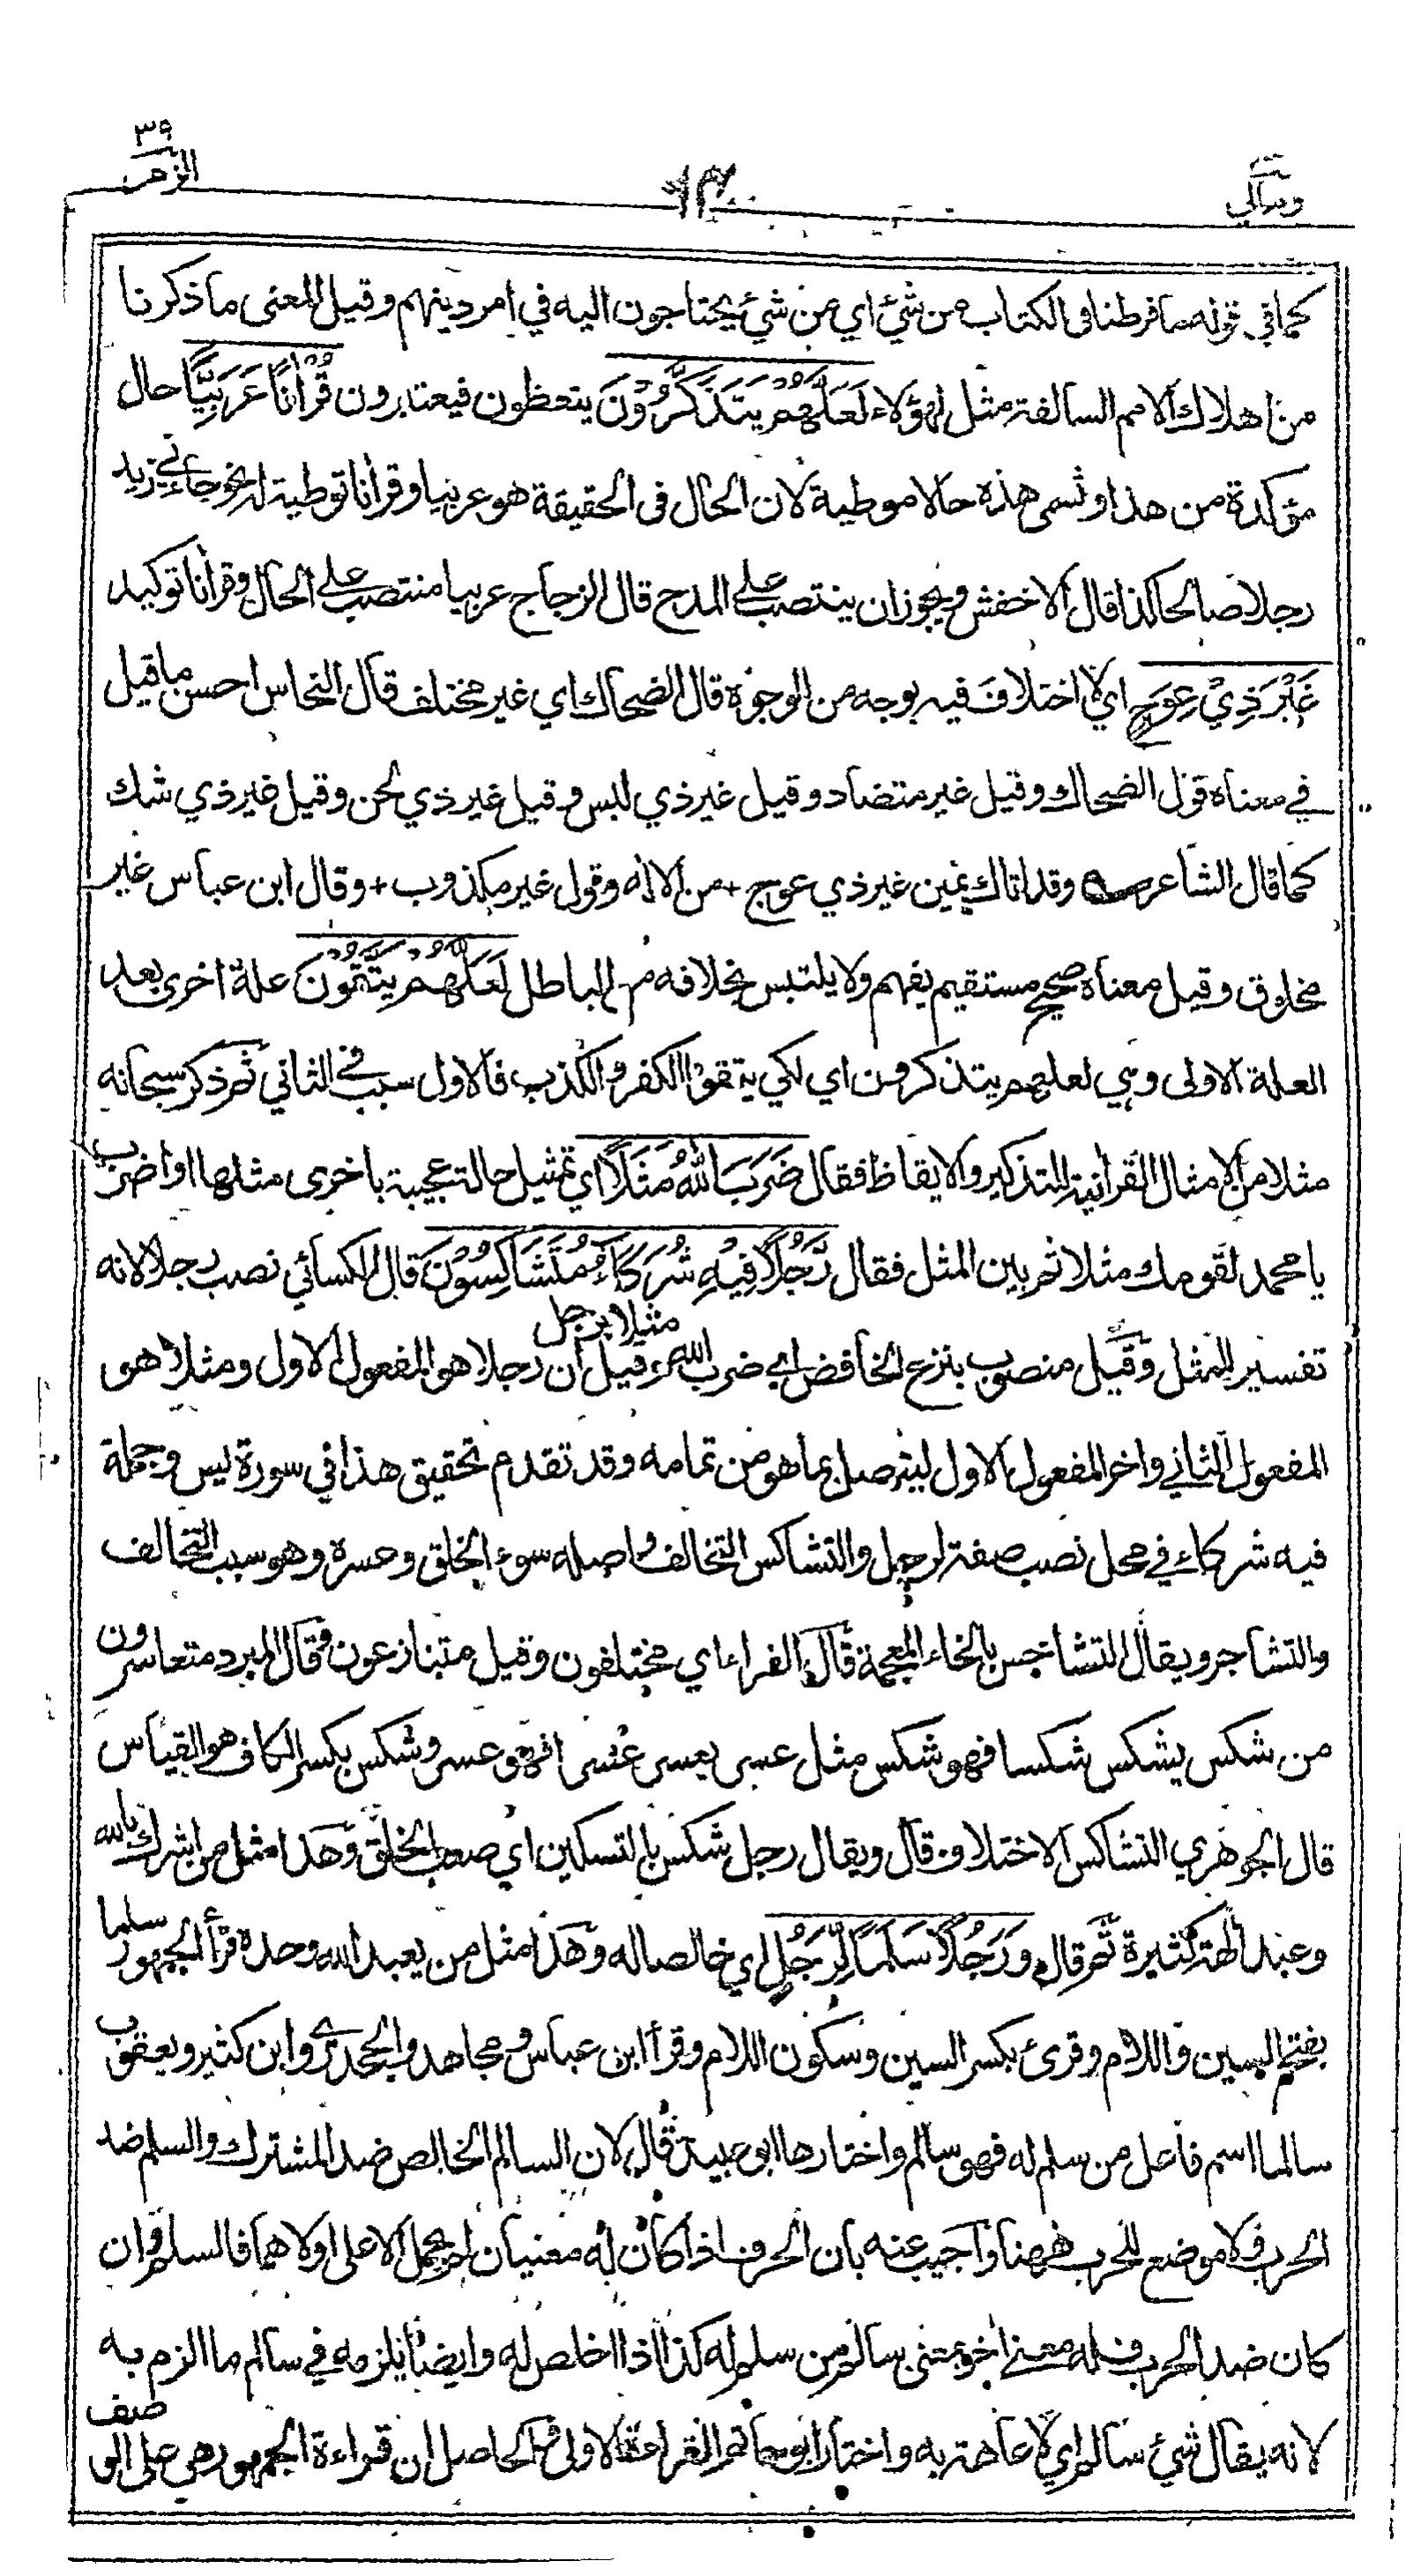 ٣٩
الزمر
ومالي
كما في قوله ما فرطنا في الكتاب من شيء اي من شيء يحتاجون اليه في امر دينهم وقيل المعنى ما ذكرنا
من اهلاك الامم السالفة مثل لهؤلاء لَعَلَّهُمْ يَتَذَكَّرُوْنَ يتعظون فيعتبرون قُرْاٰنًا عَرَبِيًّا حال
مؤكدة من هذا وتسمى هذه حالا موطية لان الحال في الحقيقة هو عربيا وقرانا توطية له نحو جاءني زيد
رجلا صالحا كذا قال الاخفش ويجوز ان ينتصب على المدح قال الزجاج عربيا منتصب على الحال وقرانا توكيد
غَيْرَ ذِيْ عِوَجٍ اي لا اختلاف فيه بوجه من الوجوه قال الضحاك اي غير مختلف قال النحاس احسن ما قيل
في معناه قول الضحاك وقيل غير متضاد وقيل غير ذي لبس وقيل غير ذي لحن وقيل غير ذي شك
كما قال الشاعر وقد اتاك يقين غير ذي عوج + من الاله وقول غير مكذوب + وقال ابن عباس غير
مخلوق وقيل معناه صحيح مستقيم يفهم ولا يلتبس بخلافه من الباطل لَعَلَّهُمْ يَتَّقُوْنَ علة اخرى بعد
العلة الاولى وهي لعلهم يتذكرون اي لكي يتقوا الكفر والكذب فالاول سبب في الثاني ثم ذكر سبحانه
مثلا من الامثال القرانية للتذكير والايقاظ فقال ضَرَبَ اللّٰهُ مَثَلًا اي تمثيل حالة عجيبة باخرى مثلها او اضرب
يا محمد لقومك مثلا ثم بين المثل فقال رَّجُلًا فِيْهِ شُرَكَآءُ مُتَشَاكِسُوْنَ قال الكسائي نصب رجلا لانه
تفسير للمثل وقيل منصوب بنزع الخافض اي ضرب الله مثلا برجل وقيل ان رجلا هو المفعول الاول ومثلا هو
المفعول الثاني واخر المفعول الاول ليتصل بما هو من تمامه وقد تقدم تحقيق هذا في سورة يس وجملة
فيه شركاء في محل نصب صفة لرجل والتشاكس التخالف واصله سوء الخلق وعسره وهو سبب التخالف
والتشاجر ويقال التشاخس بالخاء المعجمة قال الفراء اي مختلفون وقيل متنازعون وقال المبرد متعاسرون
من شكس يشكس شكسا فهو شكس مثل عسر يعسر عسرا فهو عسر وشكس بكسر الكاف هو القياس
قال الجوهري التشاكس الاختلاف قال ويقال رجل شكس بالتسكين اي صعب الخلق وهذا مثل من اشرك بالله
وعبد الهة كثيرة ثم قال وَرَجُلًا سَلَمًا لِّرَجُلٍ اي خالصا له وهذا مثل من يعبد الله وحده قرأ الجمهور سلما
بفتح السين واللام وقرئ بكسر السين وسكون اللام وقرأ ابن عباس ومجاهد والجحدري وابن كثير ويعقوب
سالما اسم فاعل من سلم له فهو سالم واختارها ابو عبيد قال لان السالم الخالص ضد المشترك والسلم ضد
الحرب فلا موضع للحرب ههنا واجيب عنه بان الحرف اذا كان له معنيان لم يحمل الا على اولاهما فالسلم وان
كان ضد الحرب فله معنى اخر بمعنى سالم من سلم له كذا اذا خلص له وايضا يلزمه في سالم ما الزم به
لانه يقال شيء سالم اي لا عاهة به واختار ابو حاتم القراءة الاولى والحاصل ان قراءة الجمهور هي على الوصف